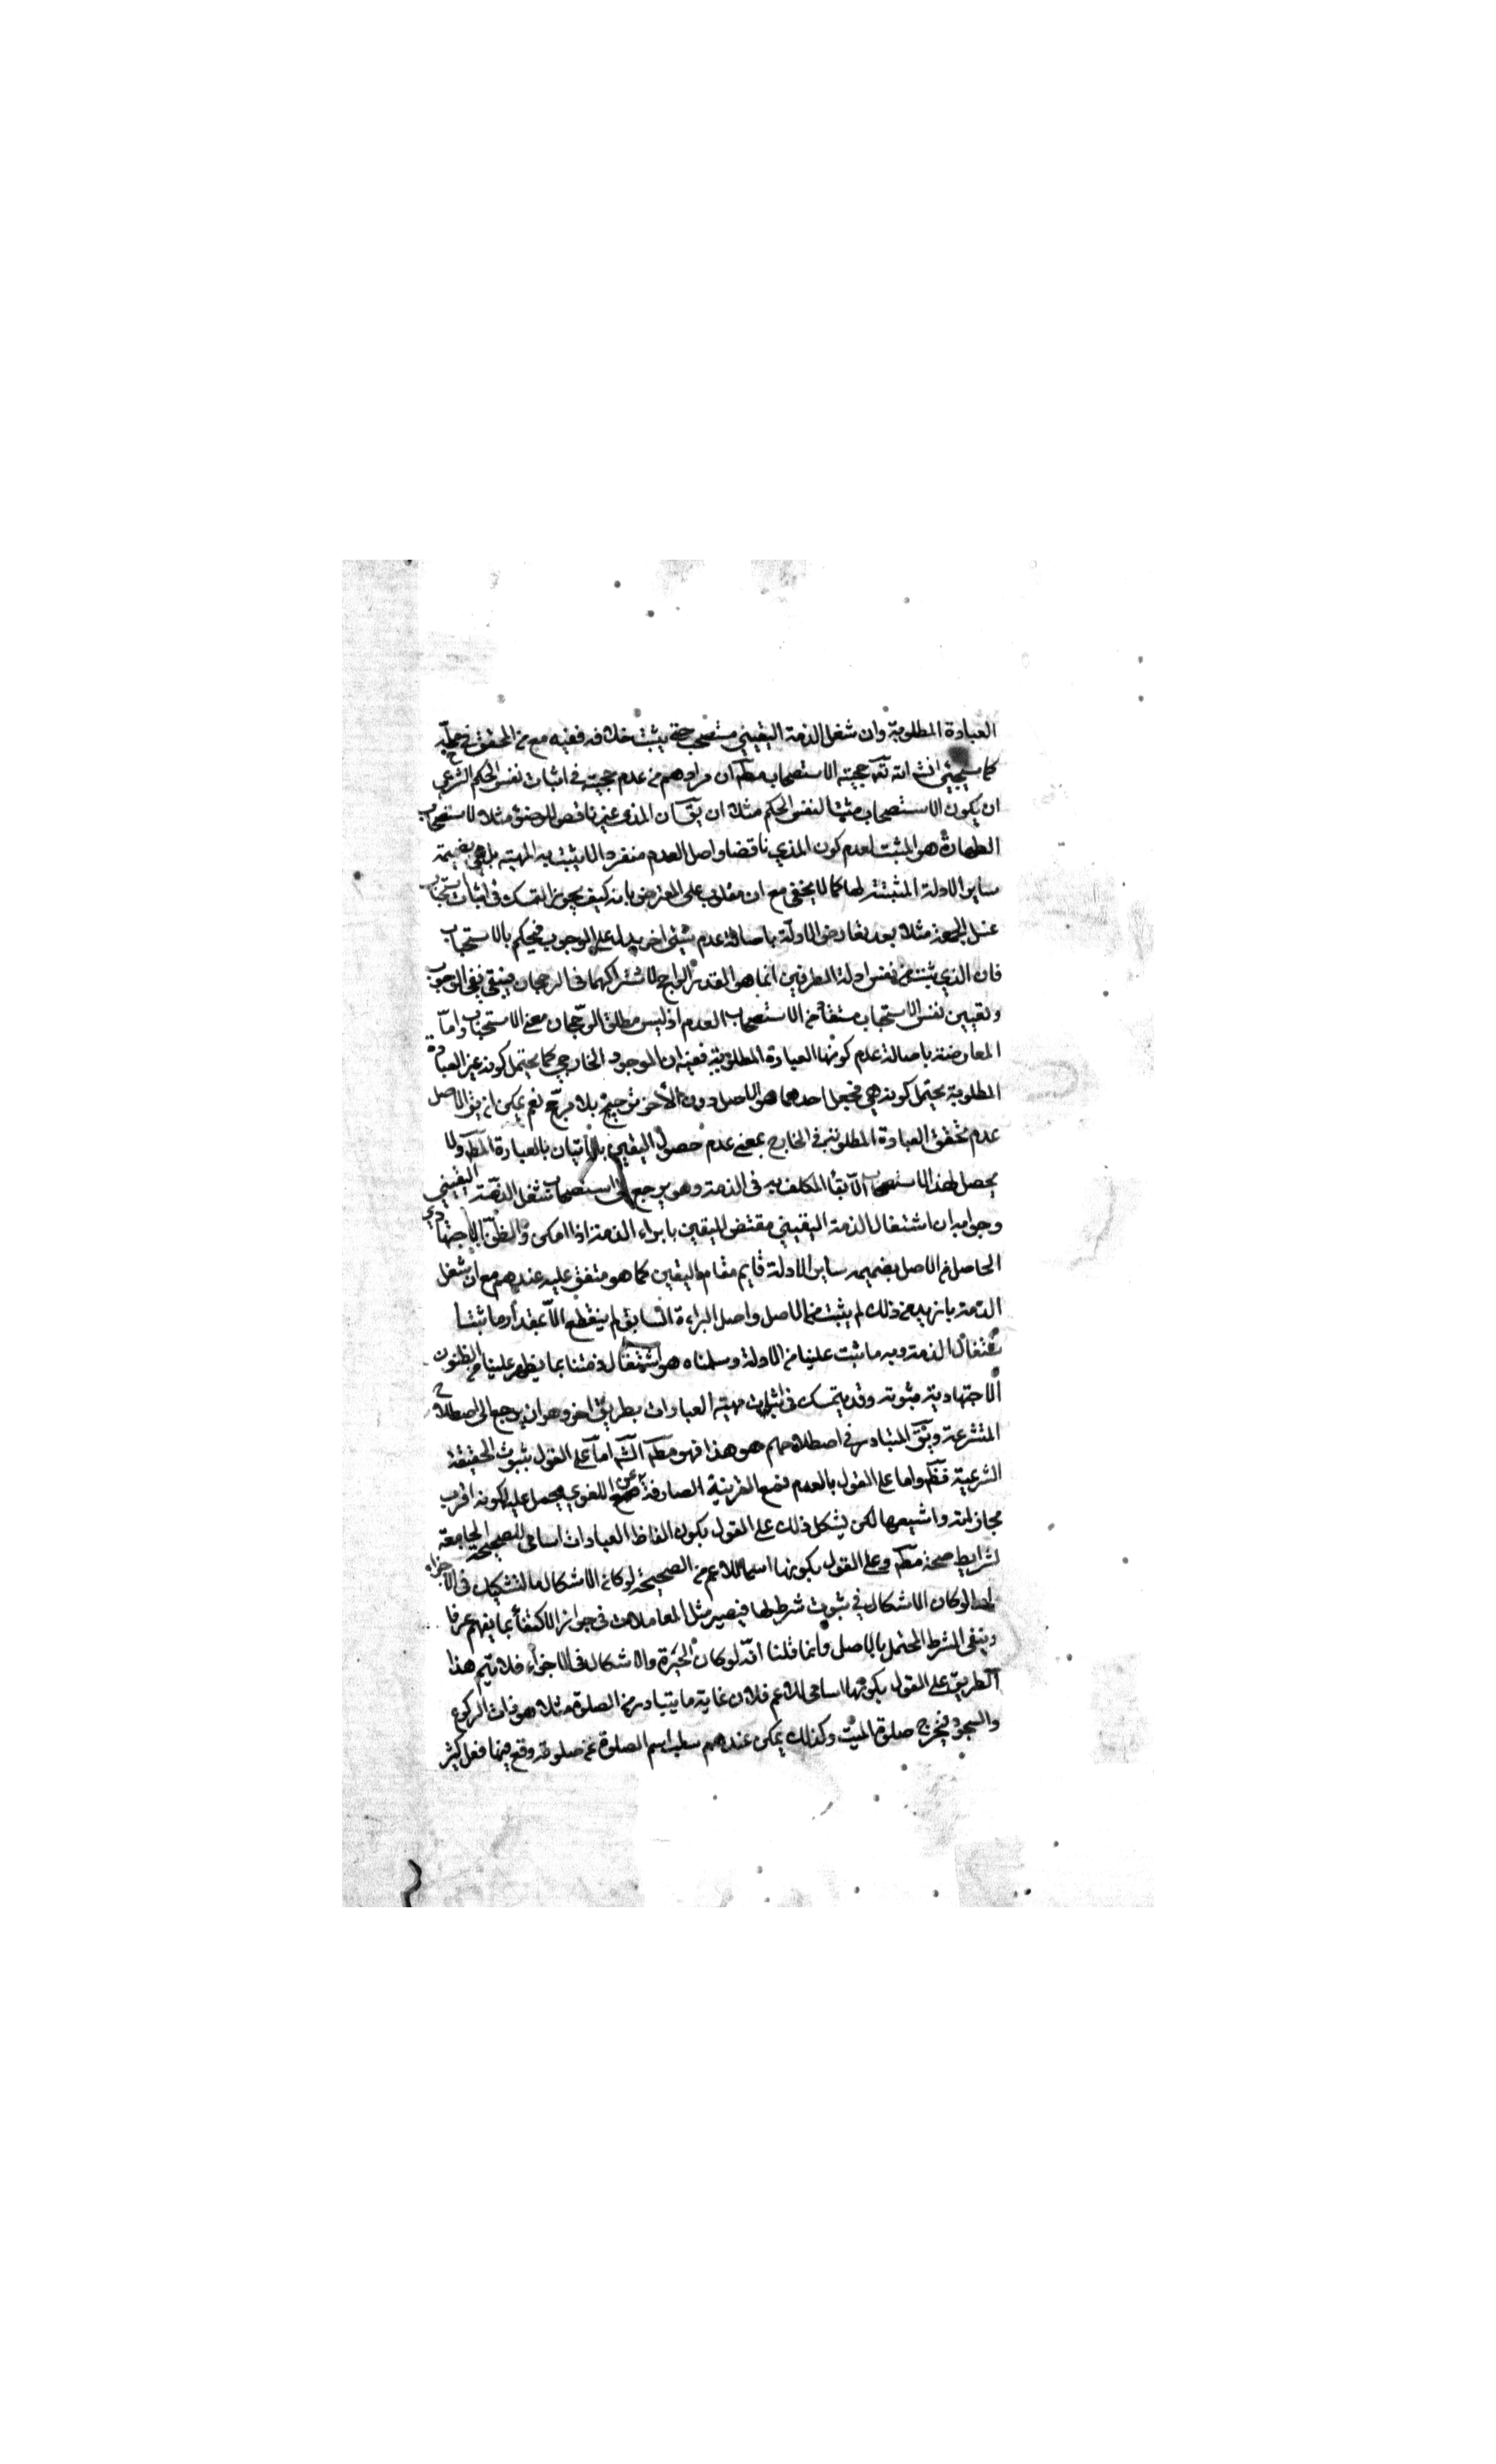 العبادة المطلوبة وان شغل الذمة اليقيني مستصحب حتى يثبت خلافه ففيه مع من المحقق في محله
كما سيجيئ انشاء الله تعـ حجية الاستصحاب مطـ ان مرادهم من عدم حجيته في اثبات نفس الحكم الشرعي
ان يكون الاستصحاب مثبتا لنفس الحكم مثلا ان يقـ ان المذي غير ناقص للوضوء مثلا لاستصحاب
الطهارة هو المثبت لعدم كون المذي ناقضا واصل العدم منفردا لا يثبت به المهية بل هي بضميمة
ساير الادلة المثبتة لها كما لا يخفى مع ان مقلوب على المعترض بانه كيف يجوز التمسك في اثبات استحباب
غسل الجمعة مثلا بعد تعارض الادلة باصالة عدم شيئ اخر يدل على الوجوب فيحكم بالاستحباب
فان الذي يثبت من نفس ادلة الطرفين انما هو القدر الراجح لاشتراكهما في الرجحان فيبقى نفي الوجوب
وتعيين نفس الاستحباب مستفاد من الاستصحاب العدم اذ ليس مطلق الرجحان معنى الاستحباب واما
المعارضة باصالة عدم كونها العبادة المطلوبة ففيه ان الموجود الخارجي كما يحتمل كونه غير العبادة
المطلوبة يحتمل كونه هي فجعل احدهما هو الاصل دون الأخر ترجيح بلا مرجح نعم يمكن ان يقـ الاصل
عدم تحقق العبادة المطلوبة في الخارج بمعنى عدم حصول اليقين بالأتيان بالعبادة المطـ ولا
يحصل لهذا الاستصحاب الا بقأ المكلف به في الذمة وهو يرجع الى استصحاب شغل الذمة اليقيني
وجوابه ان اشتغال الذمة اليقيني مقتض لليقين بابراء الذمة اذا امكن والظن الاجتهادي
الحاصل من الاصل بضميمه ساير الادلة قايم مقام اليقين كما هو متفق عليه عندهم مع ان شغل
الذمة بازيد من ذلك لم يثبت من الاصل واصل البراءة السابق لم ينقطع الا بمقدار ما ثبتنا
شتغال الذمة وبه ما ثبت علينا من الادلة وسلمناه هو اشتغال ذمتنا بما يظهر علينا من الظنون
الاجتهادية ثبوته وقد يتمسك في اثبات مهية العبادات بطريق اخر وهو ان يرجع الى اصطلاح
المتشرعة ويقـ المتبادر في اصطلاحهم هو هذا فهو مطـ الشـ اما على القول بثبوت الحقيقة
الشرعية فظـ واما على القول بالعدم فمع القرينة الصارفة عن اللغوي يحمل عليه لكونه اقرب
مجازاته واشيعها لكن يشكل ذلك على القول بكون الفاظ العبادات اسامي للصحيحة الجامعة
لشرايط صحة مطـ وعلى القول بكونها اسما للاعم من الصحيحة لو كان الاشكال والتشكيك في الاجزاء
لو كان الاشكال في ثبوت شرط لها فيصير مثل المعاملات في جواز الاكتفأ بما يفهم عرفا
وينفى الشرط المحتمل بالاصل وانما قلنا انه لو كان الحيرة والاشكال في الاجزأ فلا يتم هذا
الطريق على القول بكونها اسامى للاعم فلان غاية ما يتبادر من الصلوة مثلا هو ذات الركوع
والسجود فيخرج صلوة الميت وكذلك يمكن عندهم سلب اسم الصلوة عن صلوة وقع فيها فعل كثير